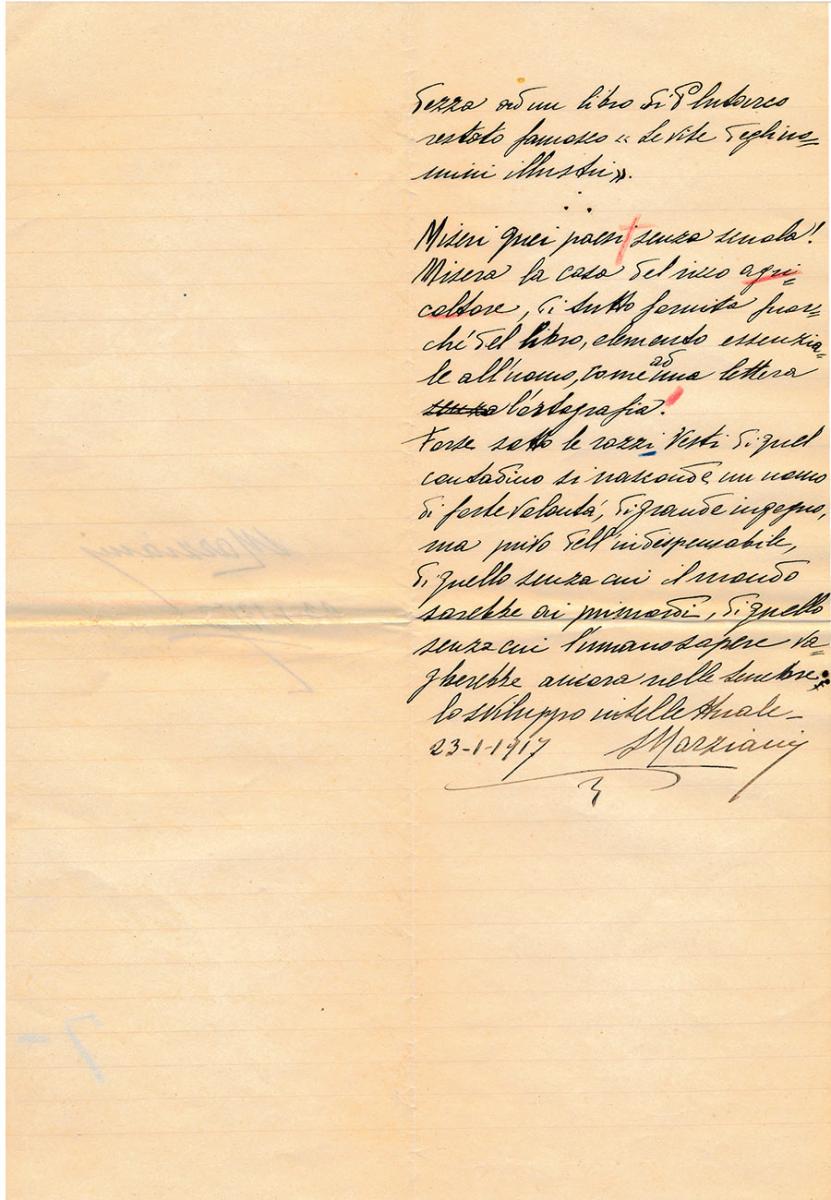 dezza ad un libro di Plutarco
restato famoso « Le vite degli uo-
mini illustri».
Miseri quei paesi senza scuola!
Misera la casa del ricco agri-
coltore, di tutto fornita fuor-
ché del libro, elemento essenzia-
le all'uomo, come ad una lettera
senza l'ortografia!
Forse sotto le rozzi vesti di quel
contadino si nasconde un uomo
di forte volontà, di grande ingegno,
ma privo dell'indispensabile,
di quello senza cui il mondo
sarebbe ai primordi, di quello
senza cui l'umano sapere va-
gherebbe ancora nelle tenebre:
lo sviluppo intellettuale-
23-1-1917 Marziani